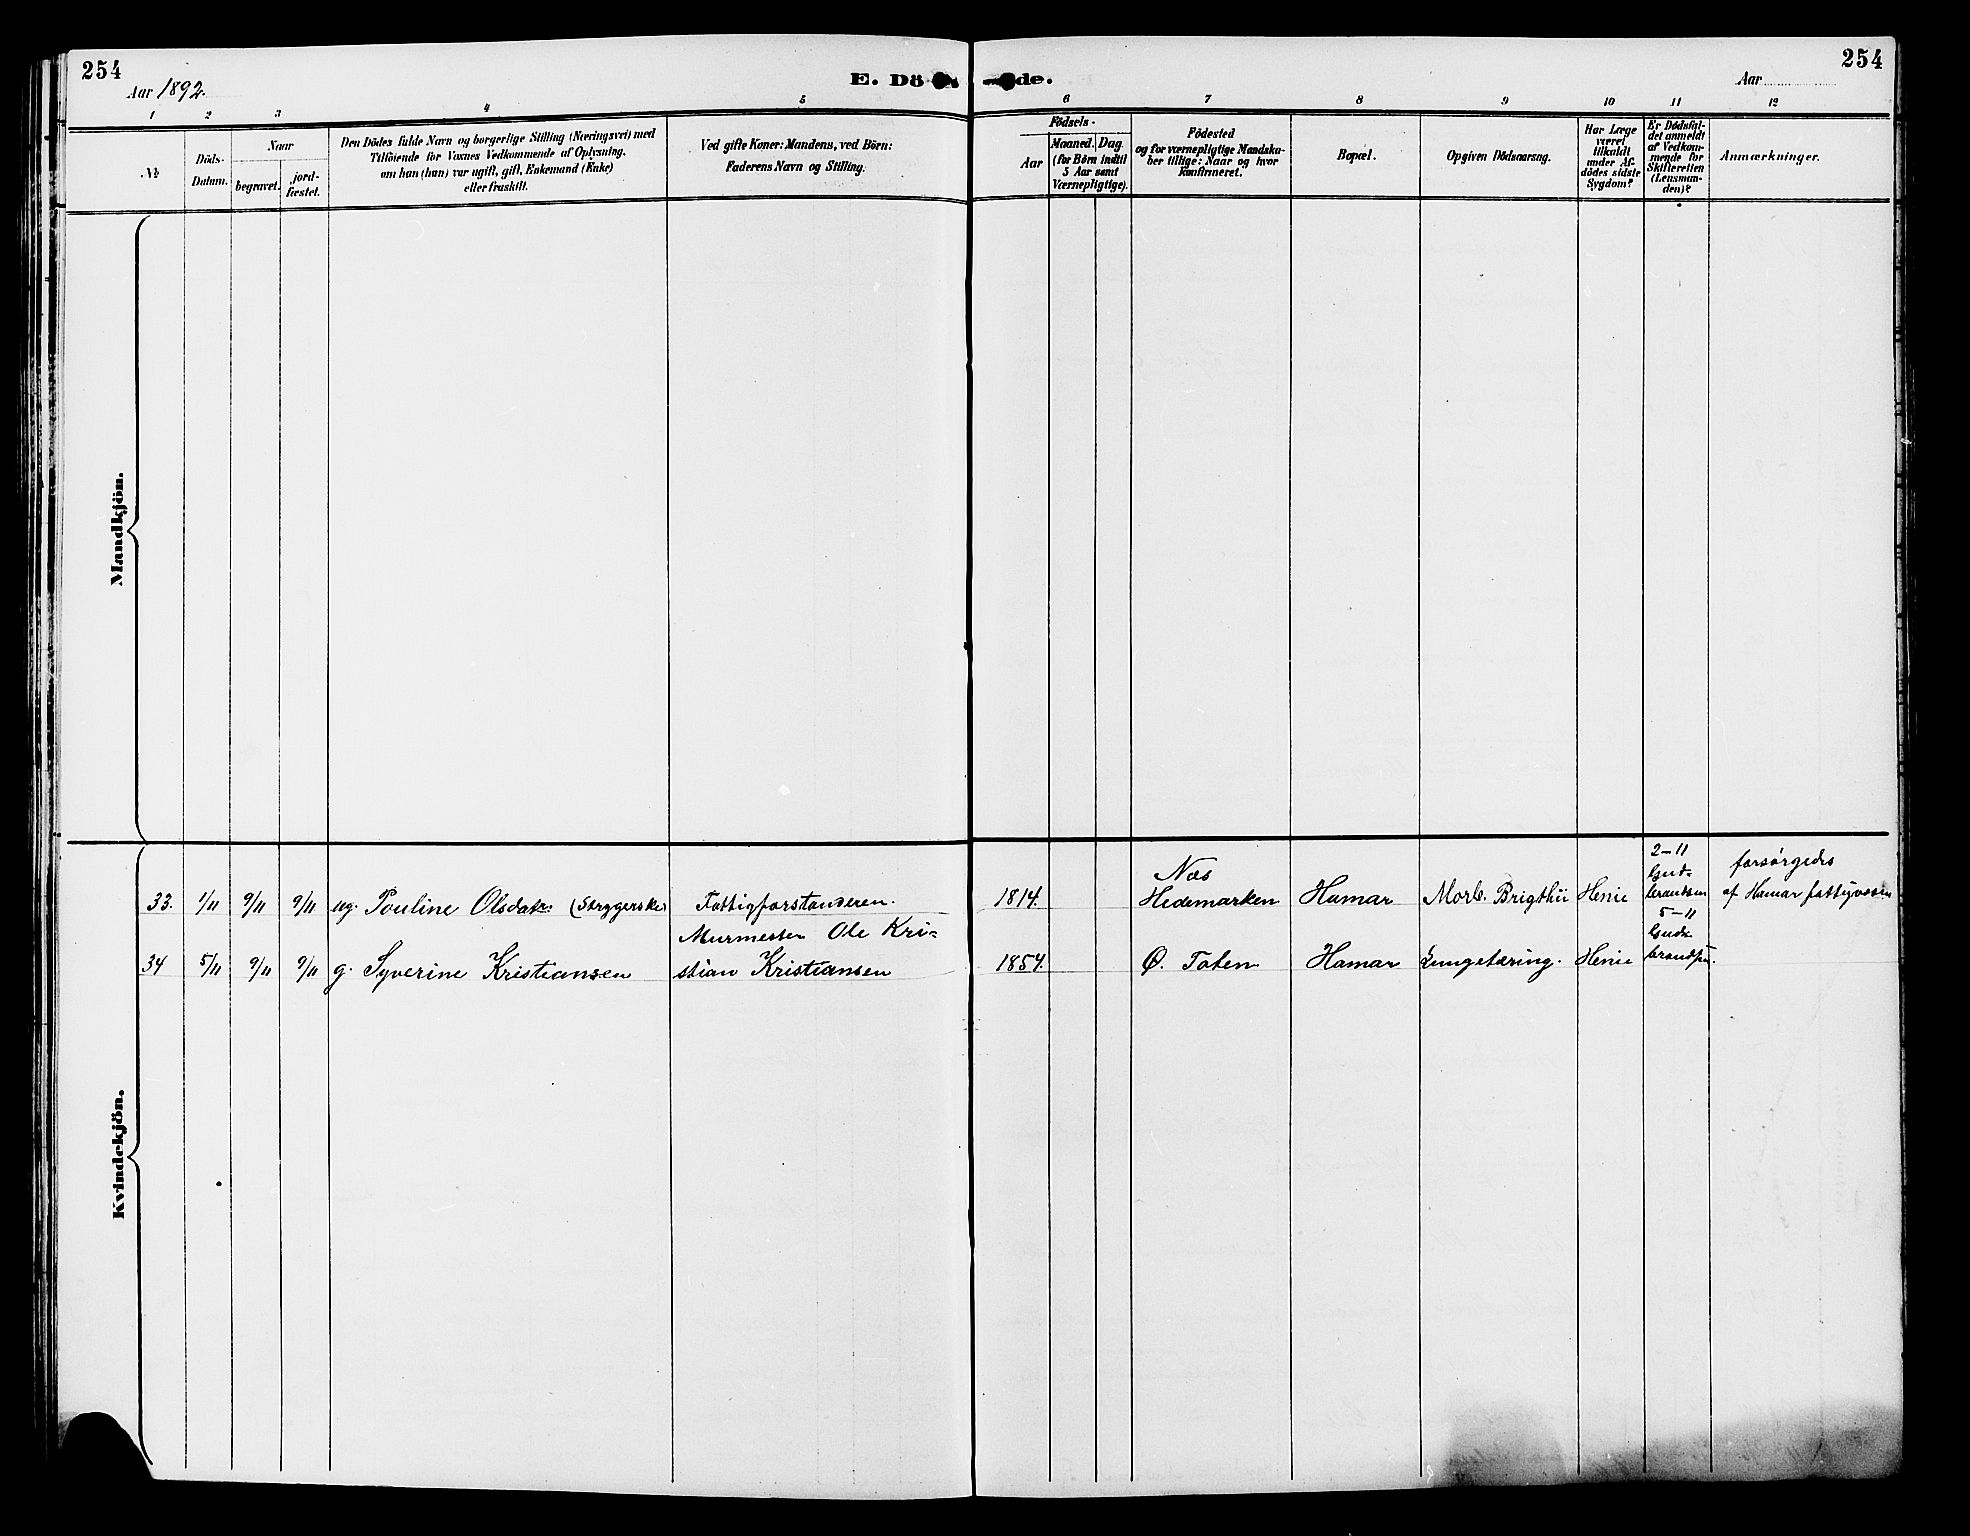 254
Aar 1892.
E. Dö
de.
Aar
254
1 2 3 4 5 6 7 8 9 10 11 12
№
Döds-
Datum.
Naar
begravet.
jord-
fæstet.
Den Dödes fulde Navn og borgerlige Stilling (Næringsvei) med
Tilföiende for Voxnes Vedkommende af Oplysning.
om han (hun) var ugift, gift, Enkemand (Enke)
eller fraskilt.
Ved gifte Koner: Mandens, ved Börn:
Faderens Navn og Stilling.
Födsels-
Aar
Maaned. Dag
(for Börn indtil
5 Aar samt
Værnepligtige).
Födested
og for værnepligtige Mandska-
ber tillige: Naar og hvor
Konfirmeret.
Bopæl.
Opgiven Dödsaarsag.
Har Læge
været
tilkaldt
under Af-
dödes sidste
Sygdom?
Er Dödsfal-
det anmeldt
af Vedkom-
mende for
Skifteretten
(Lensman-
den)?
Anmærkninger.
Mandkjön.
Kvindekjön.
33. 1/11 9/11 9/11 ug. Pouline Olsdatr. (Strygerske) Fattigforstanderen. 1814. Næs Hedemarken Hamar Morb. Brigthii Henie 2-11 Gud- brandsen forsørgedes af Hamar fattigvæsen
34 5/11 9/11 9/11 g. Syverine Kristiansen Murmester Ole Kri=
stian Kristiansen 1854. Ø. Toten Hamar Lungetæring. Henie 5-11 Gud- brandsen.